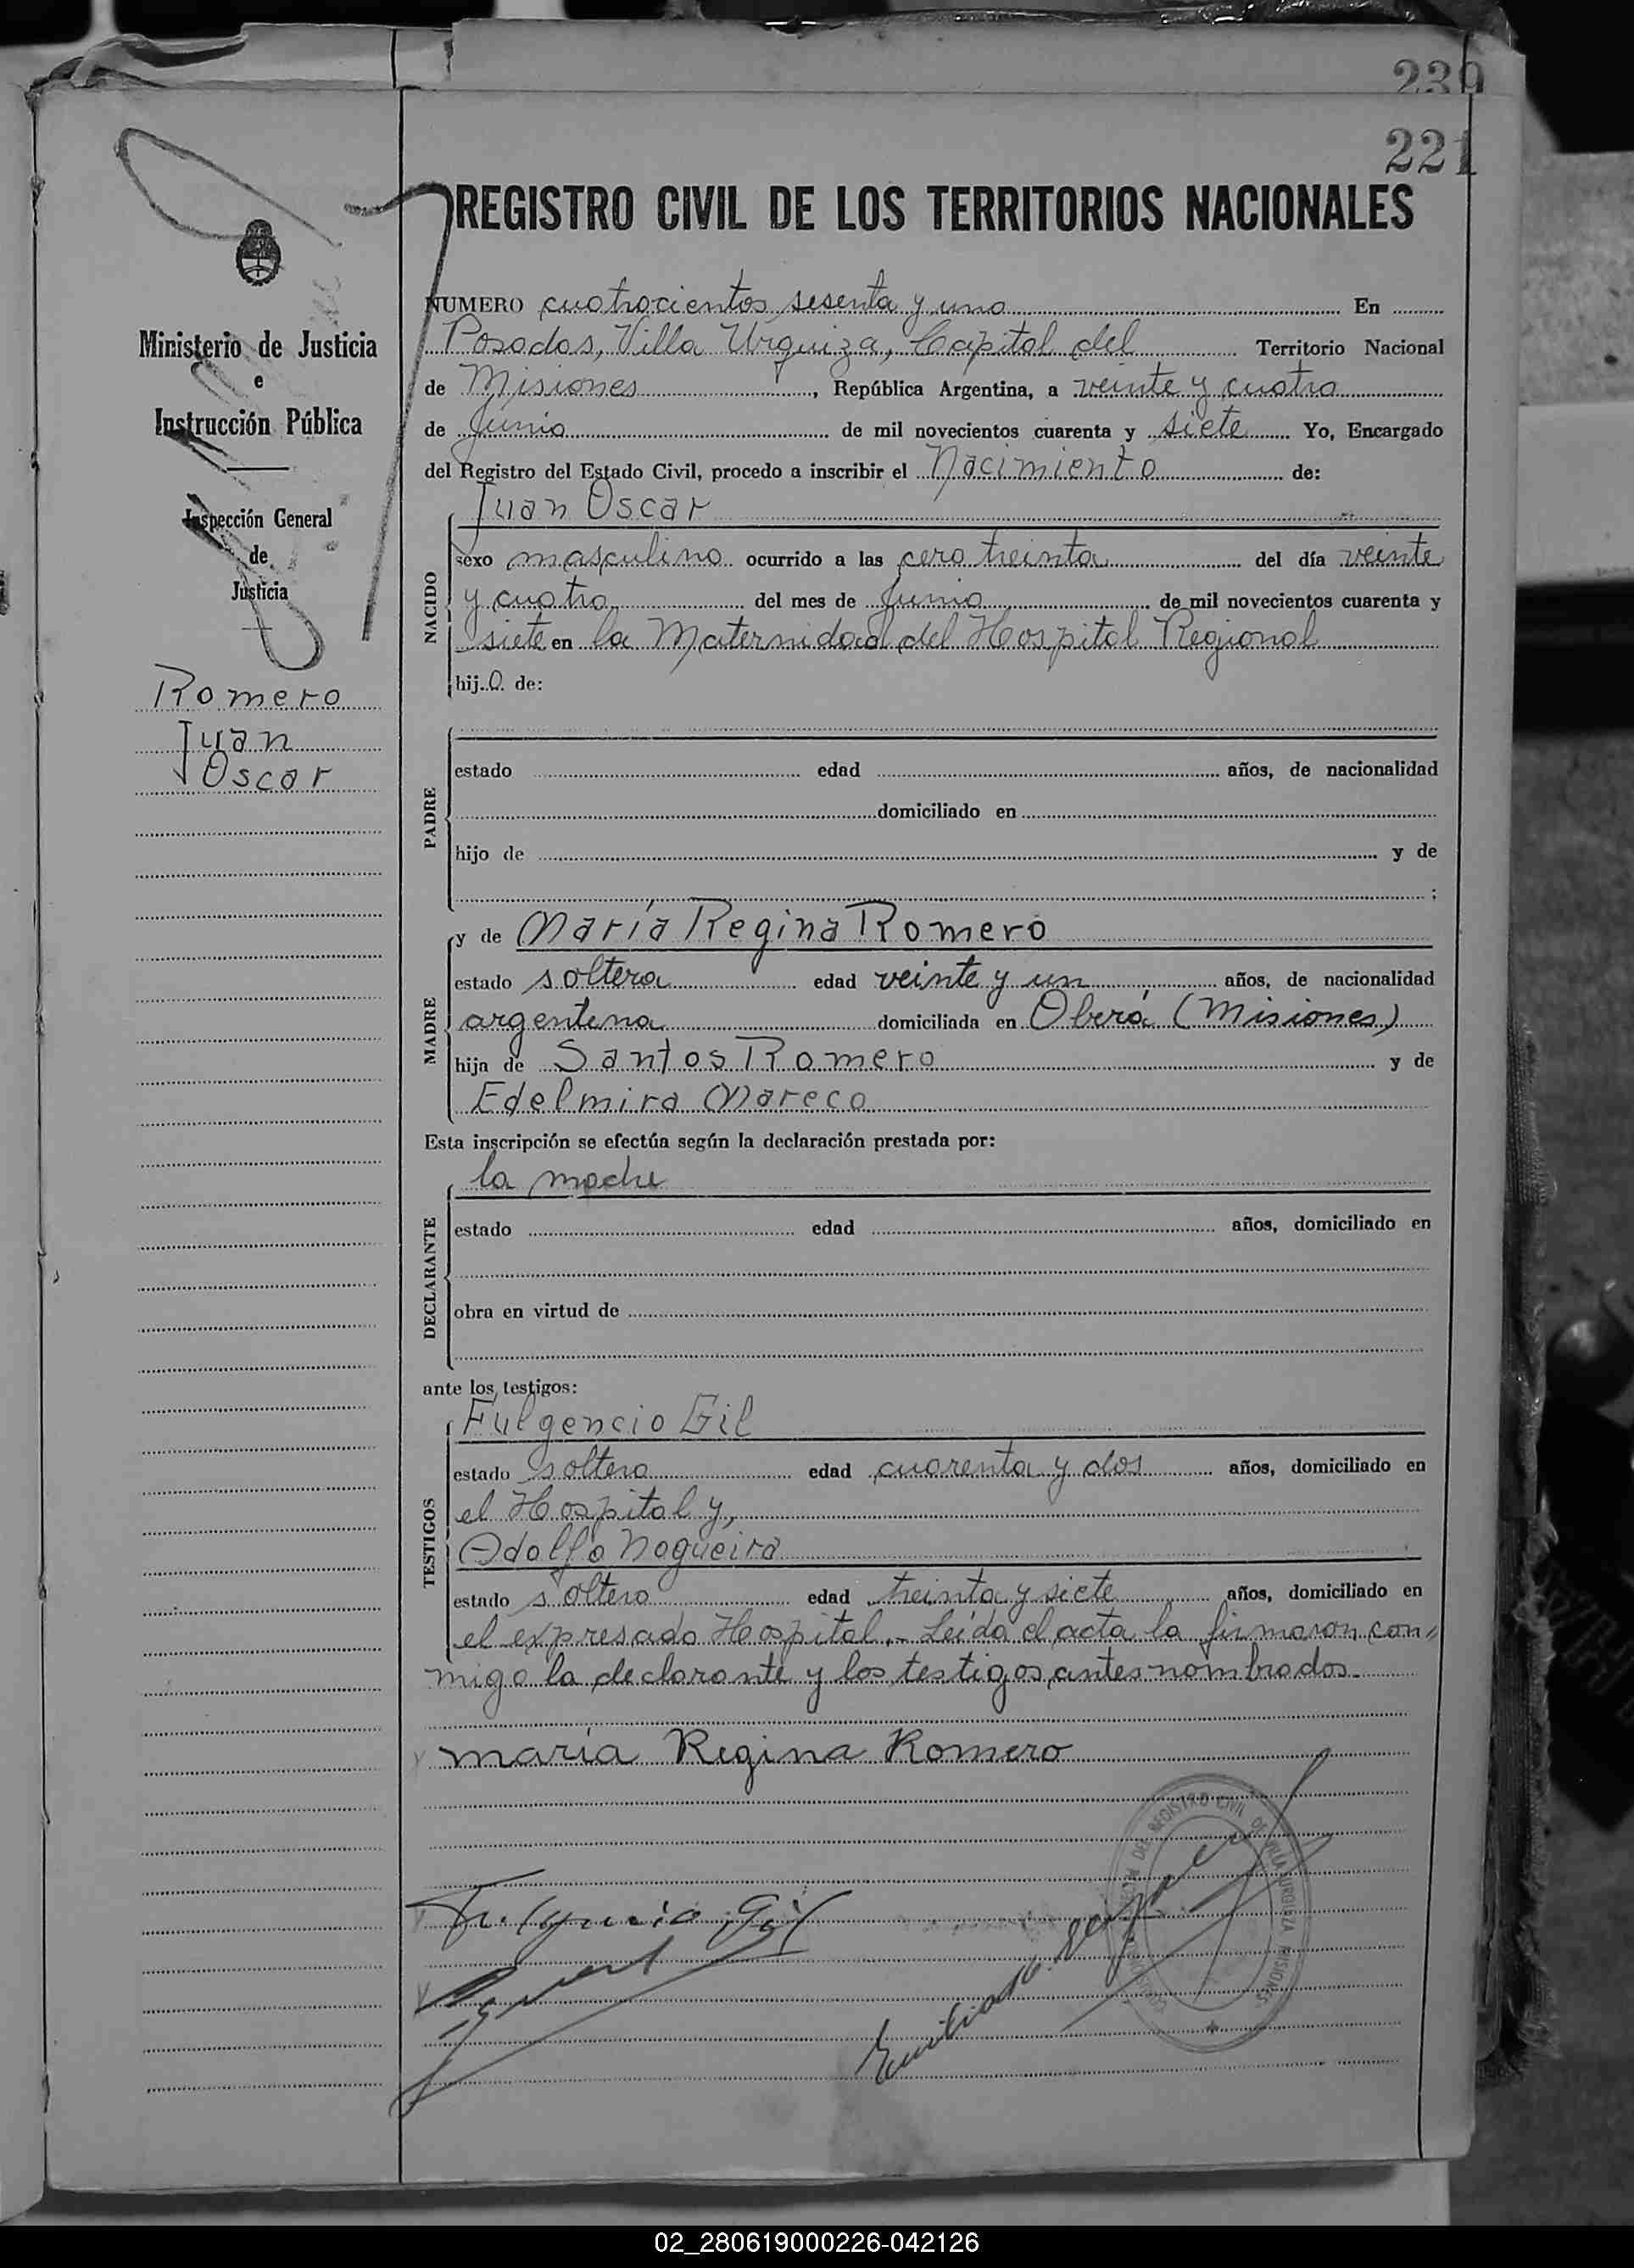 239
221
REGISTRO CIVIL DE LOS TERRITORIOS NACIONALES
Ministerio de Justicia
e
Instrucción Pública
Inspección General
de
Justicia
Romero
Juan
Oscar
NUMERO cuatrocientos sesenta y uno En
Posadas, Villa Urquiza, Capital del Territorio Nacional
de Misiones, República Argentina, a veinte y cuatro
de Junio de mil novecientos cuarenta y siete Yo, Encargado
del Registro del Estado Civil, procedo a inscribir el Nacimiento de:
Juan Oscar
NACIDO
sexo masculino ocurrido a las cero treinta del día veinte
y cuatro del mes de Junio de mil novecientos cuarenta y
siete en la Maternidad del Hospital Regional
hijo de:
PADRE
estado edad años, de nacionalidad
domiciliado en
hijo de y de
;
MADRE
y de María Regina Romero
estado soltera edad veinte y un años, de nacionalidad
argentina domiciliada en Oberá (Misiones)
hija de Santos Romero y de
Edelmira Mareco
Esta inscripción se efectúa según la declaración prestada por:
la madre
DECLARANTE
estado edad años, domiciliado en
obra en virtud de
ante los testigos:
TESTIGOS
Fulgencio Gil
estado soltero edad cuarenta y dos años, domiciliado en
el Hospital y,
Adolfo Nogueira
estado soltero edad treinta y siete años, domiciliado en
el expresado Hospital.- Leída el acta la firmaron con=
migo la declarante y los testigos antes nombrados.
maría Regina Romero
Fulgencio Gil
DEL REGISTRO CIVIL DE VILLA URQUIZA MISIONES
02_280619000226-042126